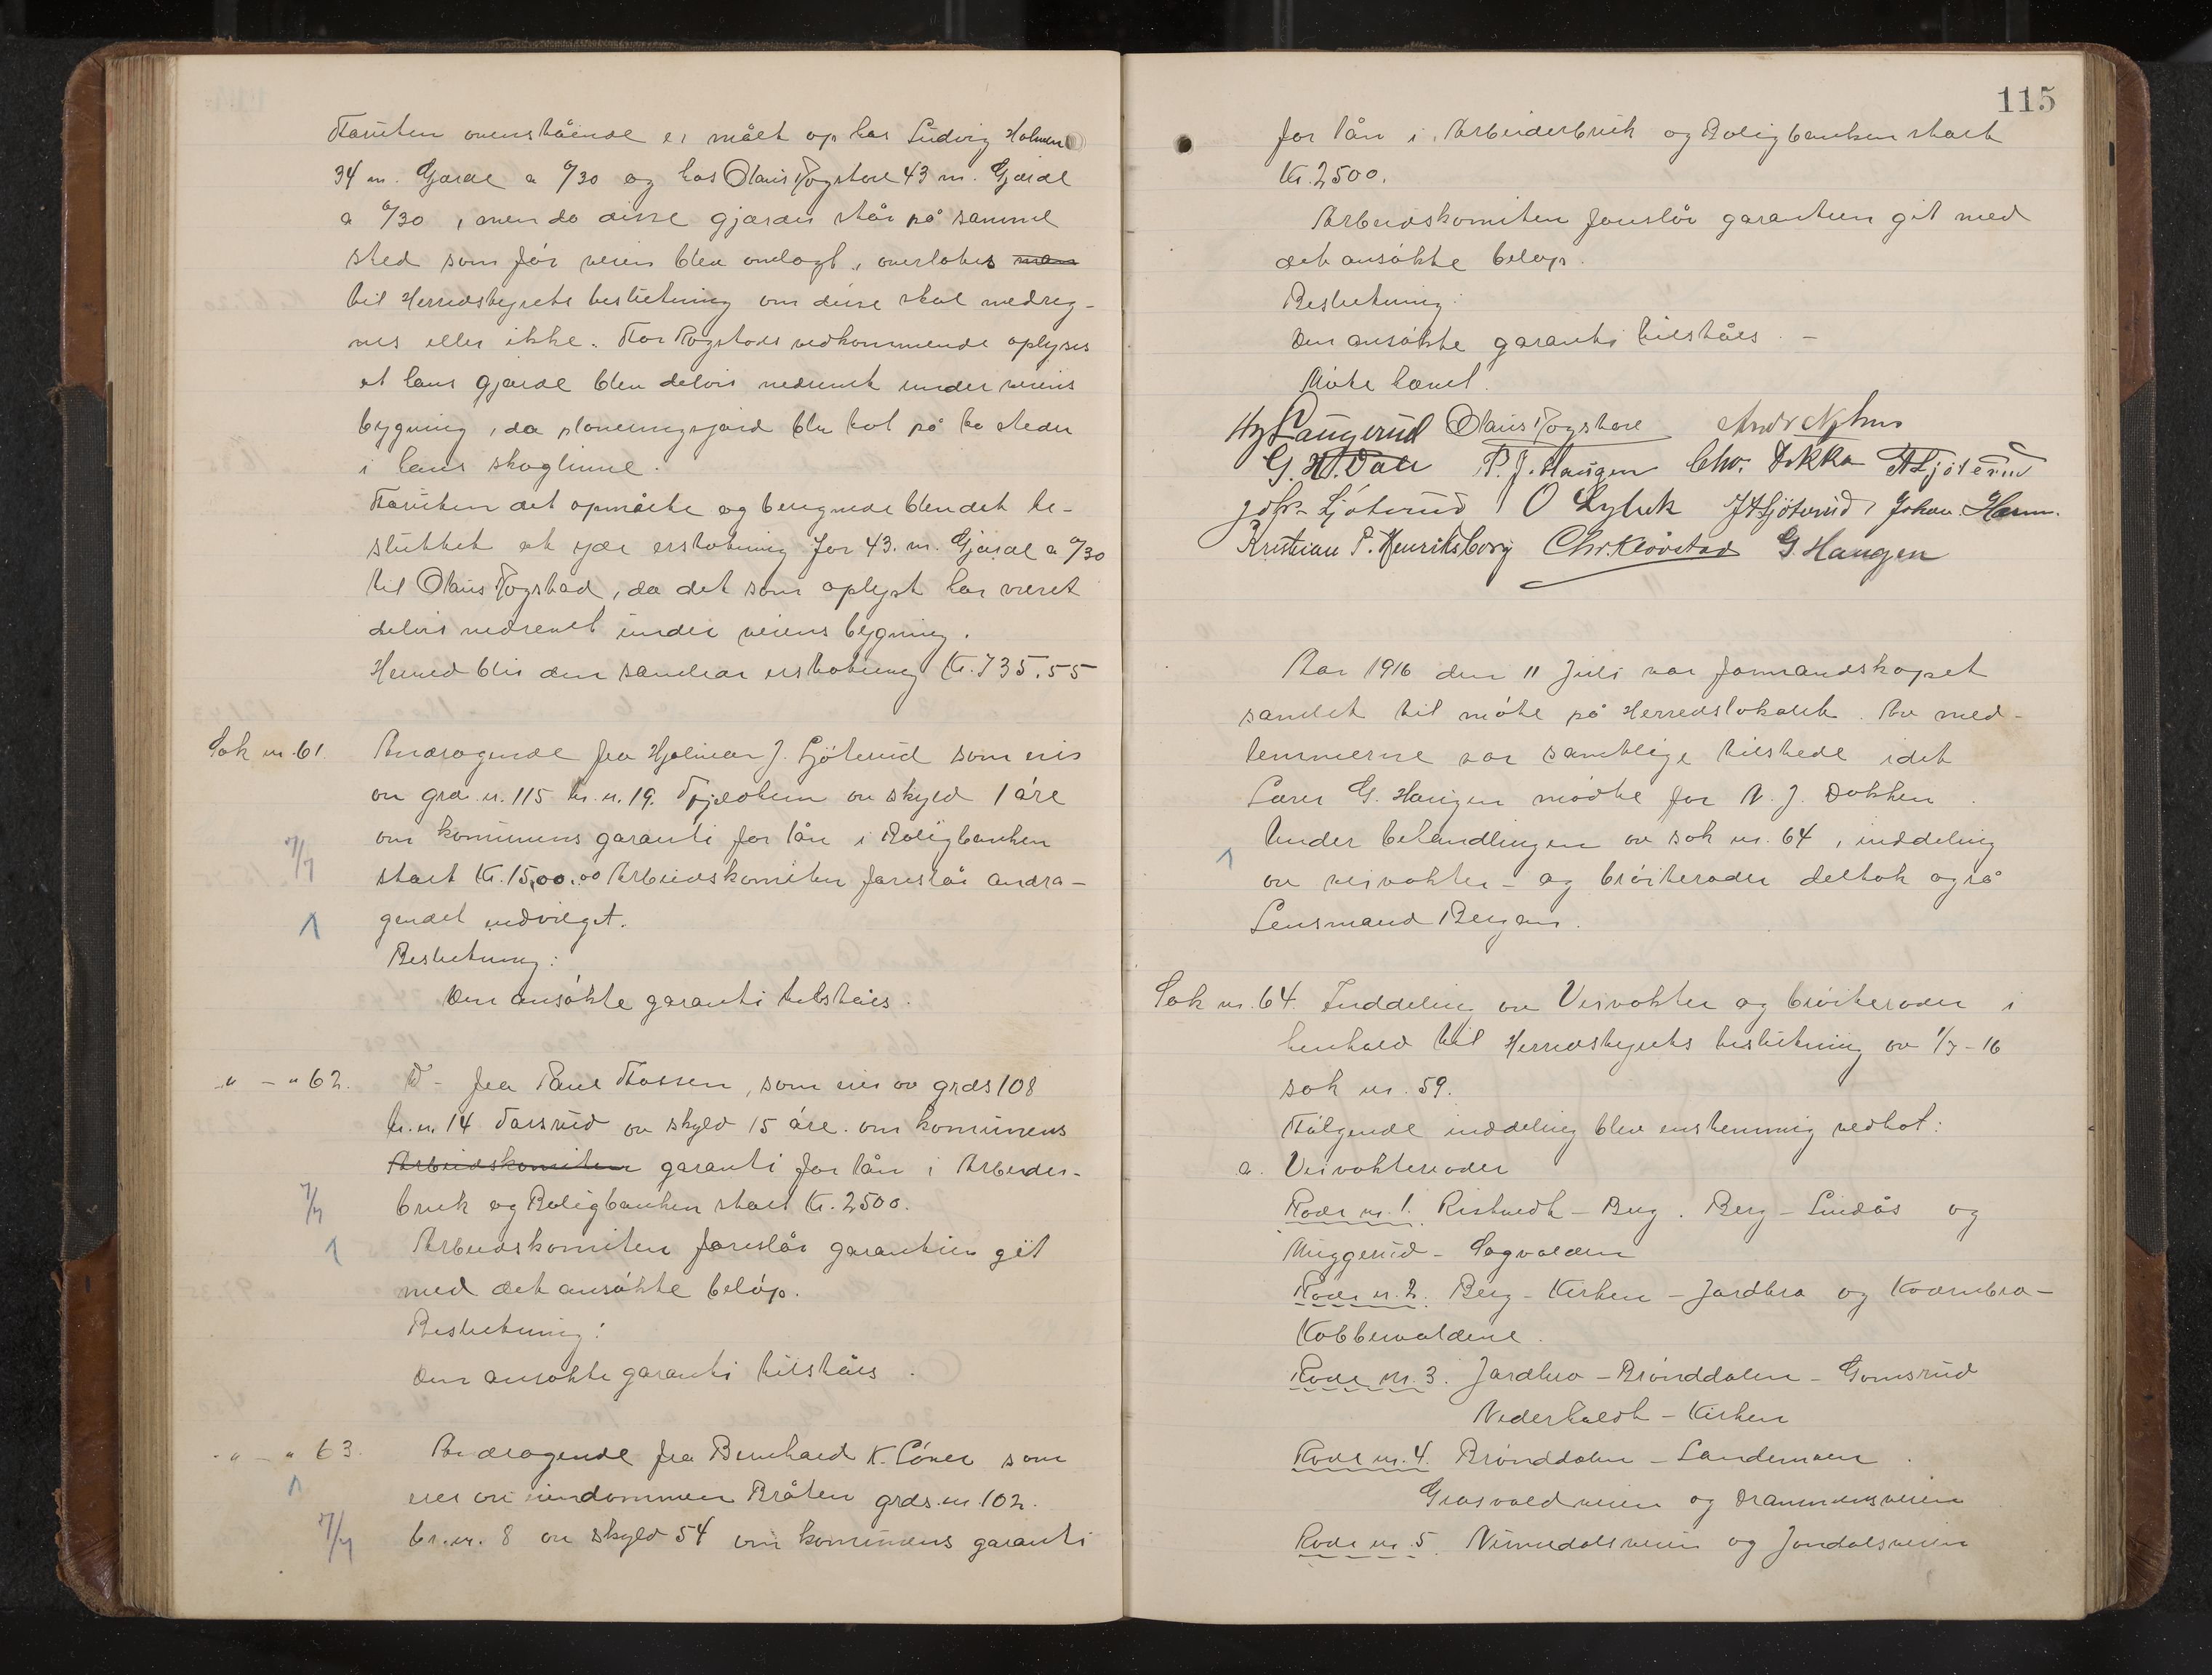 Foruten ovenstående er målt op hos Ludvig Holmen
34 m. Gjærde a 0/30 og hos Olaus Rogstad 43 m. Gjærde
a 0/30, men da disse gjærder står på samme
sted som før veien blev omlagt, overlates
til Herredsstyrets beslutning om disse skal medreg-
nes eller ikke. For Rogstads vedkommende oplyses
at hans gjærde blev delvis nedrevet under veiens
bygning, da planeringsjord blev tat på to steder
i hans skoglinne.
Foruten det opmålte og beregnede blev det be-
sluttet at yde erstatning for 43. m. Gjærde a 0/30
til Olaus Rogstad, da det som oplyst har været
delvis nedrevet under veiens bygning.
Herved blir den samlede erstatning Kr. 735.55
Sak nr. 61. Andragende fra Hjalmar J. Ljøterud som eier
av grd. nr. 115 br. nr. 19. av skyld 1 øre
om kommunens garanti for lån i Boligbanken
7/7 stort Kr. 1500.00 Arbeidskomiten foreslår andra-
gendet indvilget.
Beslutning:
Den ansøkte garanti tilståes.
" - " 62. D- fra Paul Fossen, som eier av grds 108
br. nr. 14 av skyld 15 øre. om kommunens
Arbeidskomiten garanti for lån i Arbeider-
7/7 bruk og Boligbanken stort Kr. 2500.
Arbeidskomiten foreslår garantien git
med det ansøkte beløp.
Beslutning:
Den ansøkte garanti tilståes.
" - " 63. Andragende fra Bernhard K. som
eier av eiendommen Bråten grds. nr. 102.
7/7 br. nr. 8 av skyld 54 om kommunens garanti
115
for lån i Arbeiderbruk og Boligbanken stort
Kr. 2500.
Arbeidskomiten foreslår garantien git med
det ansøkte beløp.
Beslutning:
Den ansøkte garanti tilståes. -
Møte hævet.
Langerud Olaus Rogstad
P. J. Haugen Chr. Dokka A Ljøterud
Ljøterud O Lybek J H Ljøterud Johan
Kristian P. Henriksborg Chr. Kløvstad G. Haugen
Aar 1916 den 11 Juli var formandskapet
samlet til møte på Herredslokalet. Av med-
lemmerne var samtlige tilstede idet
Lærer G. Haugen møtte for N. J. Dokken.
Under behandlingen av sak nr. 64, inddeling
av veivokter- og brøiteroder deltok også
Lensmand Bergan.
Sak nr. 64. Inddeling av Veivokter og brøiteroder i
henhold til Herredsstyrets beslutning av 1/7-16
sak nr. 59.
Følgende inddeling blev enstemmig vedtat:
a. Veivokterroder
Rode nr. 1. Ristvedt - Berg. Berg - Lindås og
Muggerud - Sagvolden
Rode nr. 2. Berg - Kirken - Jordbro og Kvernbro -
Kobbervoldene.
Rode nr. 3. Jordbro - Brønddalen - Gomsrud
Vederhaldt - Kirken
Rode nr. 4. Brønddalen - Landemoen.
Grosvoldveien og Drammensveien
Rode nr. 5. Numedalsveien og Jondalsveien